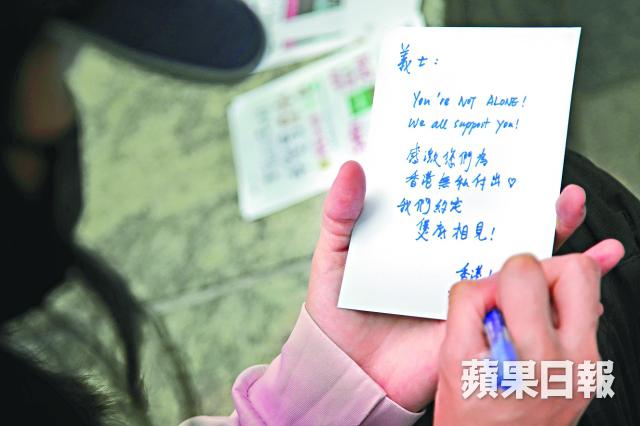 義士：
You're NOT ALONE!
We all support you!
感激你們為
香港無私付出♡
我們約定
煲底相見！
香港
蘋果日報